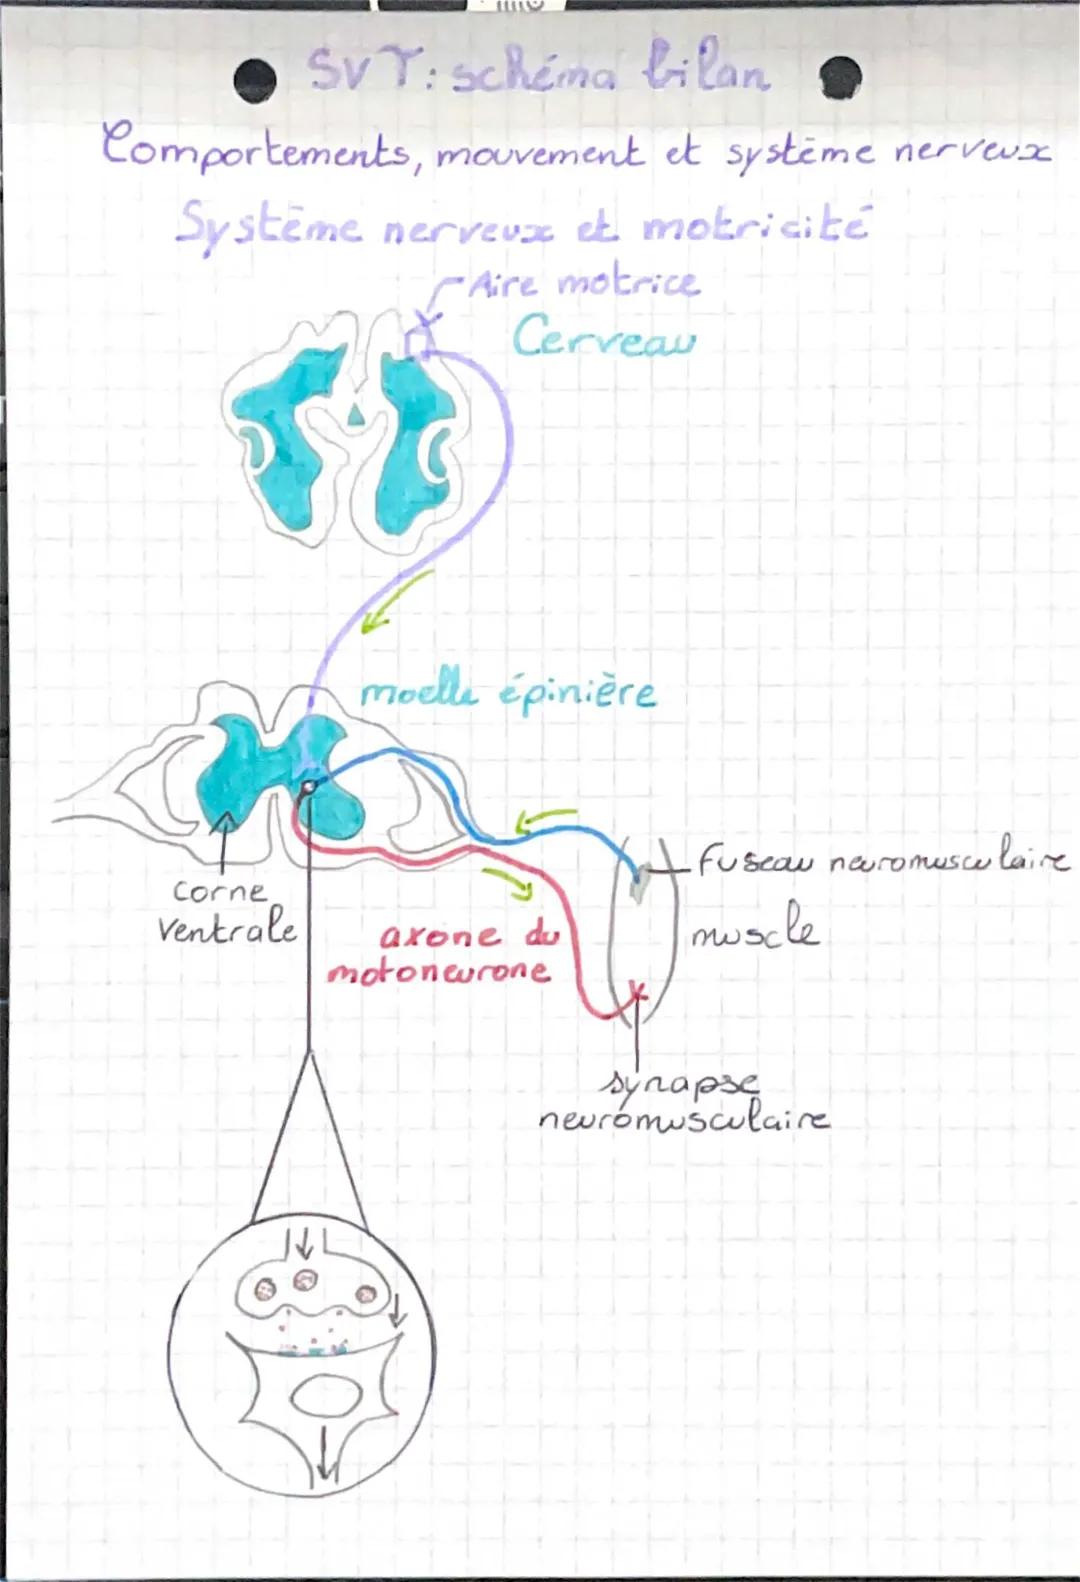 SVT: schéma bilan
Comportements, mouvement et système nerveux
Système nerveux et motricité
Aire motrice
Cerveau
moelle épinière
Fuseau neuromusculaire
corne
ventrale
muscle
axone du
motoneurone
synapse
neuromusculaire